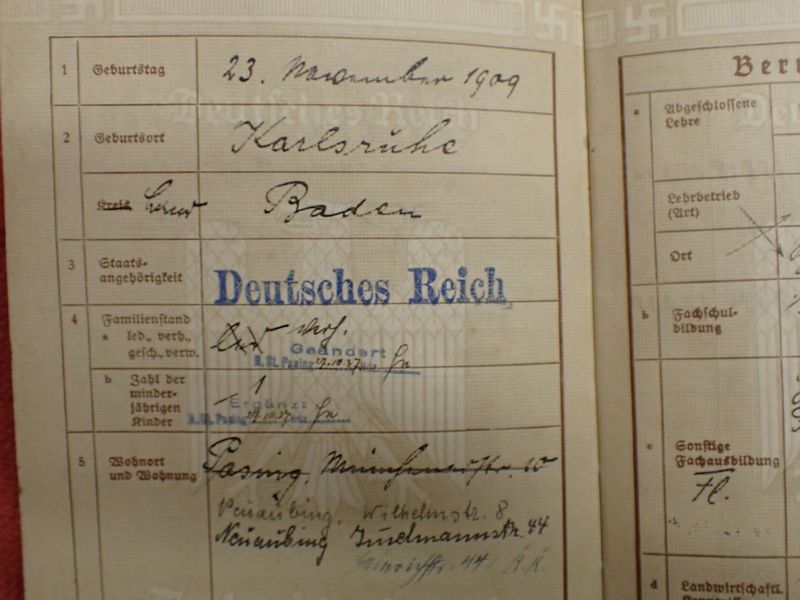 1 Geburtstag 23. November 1909
2 Geburtsort Karlsruhe
Kreis Baden
3 Staats-
angehörigkeit Deutsches Reich
4 Familienstand
a led., verh., verh.
gesch., verw.
Geändert
M. St. Pasing 27.10.37
b Zahl der
minder-
jährigen
Kinder 1
Ergänzt
27.10.37
5 Wohnort
und Wohnung Pasing, Münchenerstr. 10
Neuaubing, Wilhelmstr. 8
Neuaubing 44
44
Deutsches Reich
Beru
a Abgeschlossene
Lehre
Lehrbetrieb
(Art)
Ort
b Fachschul-
bildung
c Sonstige
Fachausbildung
Fl.
d Landwirtschaftl.